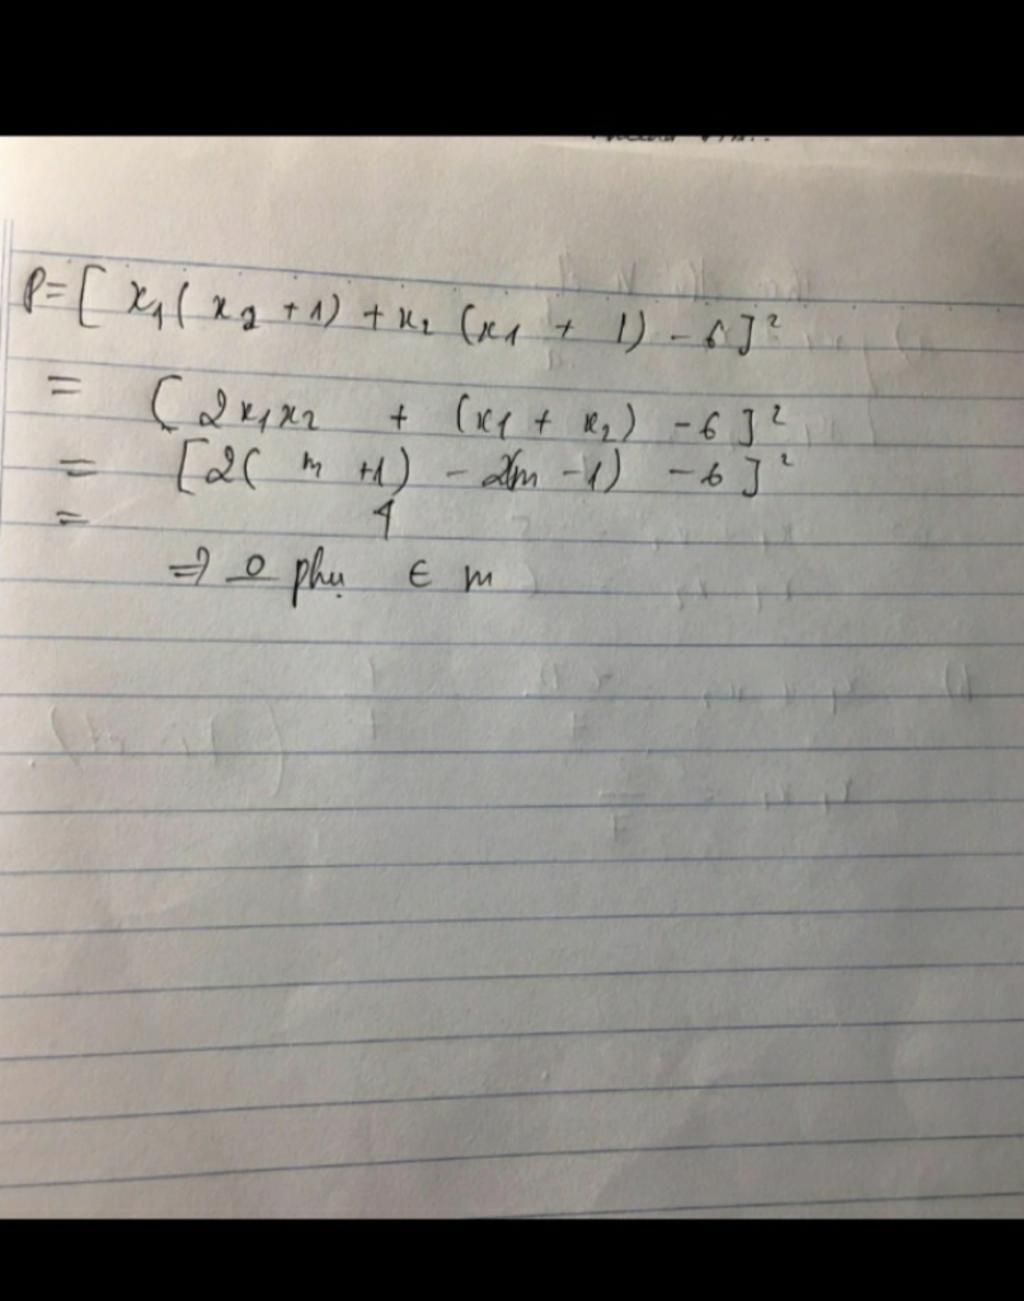 P=[ x₁( x₂ +1) + x₂ (x₁ + 1) - 6]²
= [ 2x₁x₂ + (x₁ + x₂) - 6]²
= [2( m +1) - 2m -1) - 6]²
= 4
⇒ 0 phụ ∈ m